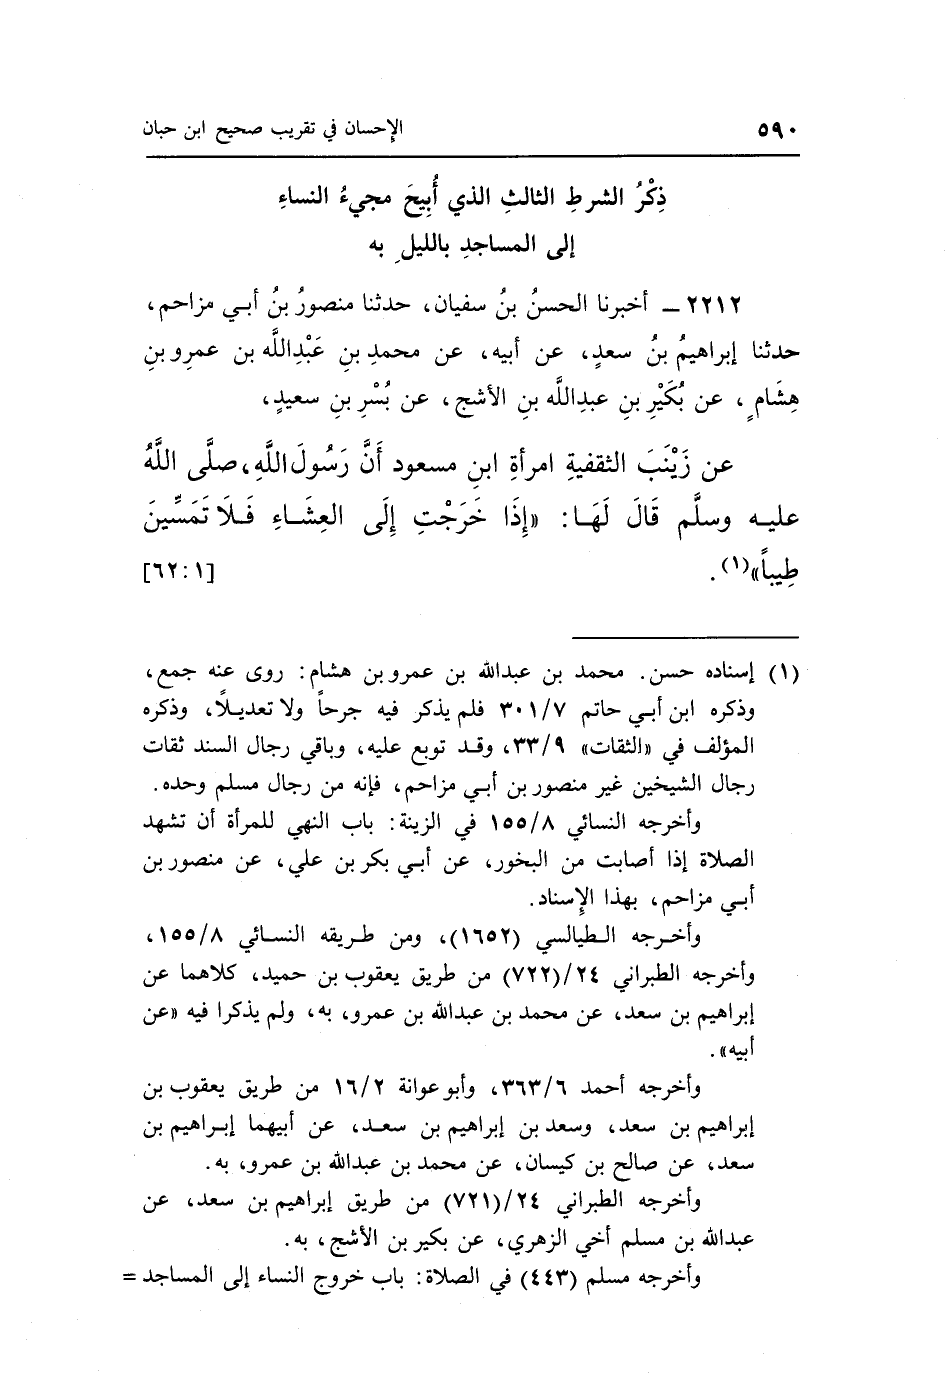 ٥٩٠ الإحسان في تقريب صحيح ابن حبان
ذِكْرُ الشرطِ الثالثِ الذي أُبِيحَ مجيءُ النساءِ
إلى المساجدِ بالليلِ به
٢٢١٢ ــ أخبرنا الحسنُ بنُ سفيان، حدثنا منصورُ بنُ أبي مزاحم،
حدثنا إبراهيمُ بنُ سعدٍ، عن أبيه، عن محمدِ بنِ عَبْدِاللَّه بن عمرِو بنِ
هِشَامٍ، عن بُكَيْرِ بنِ عبدِاللَّه بنِ الأشج، عن بُسْرِ بنِ سعيدٍ،
عن زَيْنَبَ الثقفيةِ امرأةِ ابنِ مسعود أَنَّ رَسُولَ اللَّهِ، صلَّى اللَّهُ
عليه وسلَّم قَالَ لَهَا: «إِذَا خَرَجْتِ إِلَى العِشَاءِ فَلَا تَمَسِّينَ
طِيباً»(١). [٦٢:١]
(١) إسناده حسن. محمد بن عبدالله بن عمرو بن هشام: روى عنه جمع،
وذكره ابن أبي حاتم ٣٠١/٧ فلم يذكر فيه جرحاً ولا تعديلاً، وذكره
المؤلف في «الثقات» ٣٣/٩، وقد توبع عليه، وباقي رجال السند ثقات
رجال الشيخين غير منصور بن أبي مزاحم، فإنه من رجال مسلم وحده.
وأخرجه النسائي ١٥٥/٨ في الزينة: باب النهي للمرأة أن تشهد
الصلاة إذا أصابت من البخور، عن أبي بكر بن علي، عن منصور بن
أبي مزاحم، بهذا الإسناد.
وأخرجه الطيالسي (١٦٥٢)، ومن طريقه النسائي ١٥٥/٨،
وأخرجه الطبراني ٢٤/(٧٢٢) من طريق يعقوب بن حميد، كلاهما عن
إبراهيم بن سعد، عن محمد بن عبدالله بن عمرو، به، ولم يذكرا فيه «عن
أبيه».
وأخرجه أحمد ٣٦٣/٦، وأبو عوانة ١٦/٢ من طريق يعقوب بن
إبراهيم بن سعد، وسعد بن إبراهيم بن سعد، عن أبيهما إبراهيم بن
سعد، عن صالح بن كيسان، عن محمد بن عبدالله بن عمرو، به.
وأخرجه الطبراني ٢٤/(٧٢١) من طريق إبراهيم بن سعد، عن
عبدالله بن مسلم أخي الزهري، عن بكير بن الأشج، به.
وأخرجه مسلم (٤٤٣) في الصلاة: باب خروج النساء إلى المساجد =